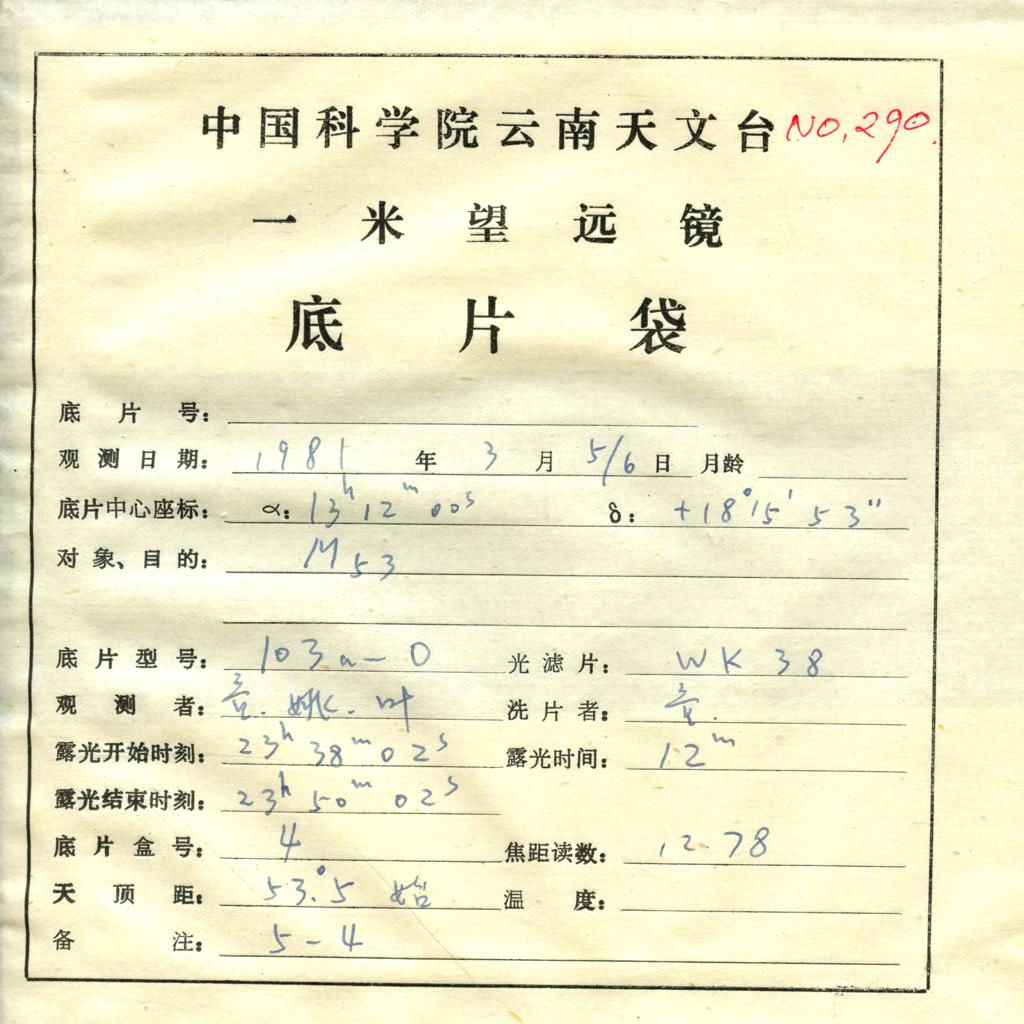 中国科学院云南天文台 NO.290.
一米望远镜
底片袋
底片号：
观测日期：1981年3月5/6日 月龄
底片中心座标：α：13h12m00s δ：+18°15′53″
对象、目的：M53
底片型号：103a-O 光滤片：WK38
观测者：童.姚.叶 洗片者：童.
露光开始时刻：23h38m02s 露光时间：12m
露光结束时刻：23h50m02s
底片盒号：4 焦距读数：12.78
天顶距：53°.5 始 温度：
备注：5-4